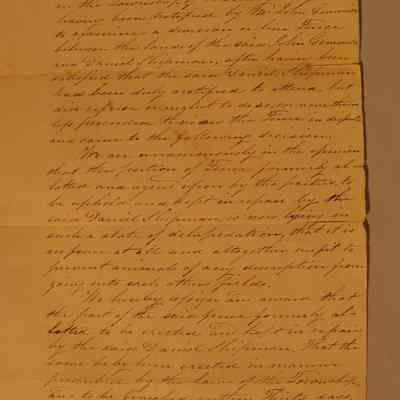 in the Township
having been notified by Mr John Simmons
to examine a division or line Fence
between the lands of the said John Simmons
and Daniel Shipman, after having been
satisfied that the said Daniel Shipman
had been duly notified to attend, but
did refuse or neglect to do so, we nevertheless
proceeded to view the Fence in dispute
and came to the following decision.
We are unanimously in the opinion
that the portion of Fence formerly al-
lotted and agreed upon by the parties, to
be upheld and kept in repair by the
said Daniel Shipman, is now lying in
such a state of delapedation, that it is
no fence at all and altogether unfit to
prevent animals of any description from
going into each others fields.
We hereby award that
the part of the said fence formerly al-
lotted to be erected and kept in repair
by the said Daniel Shipman, That the
same be erected in manner
prescribed by the Laws of the Township,
and to be finished within Thirty days,